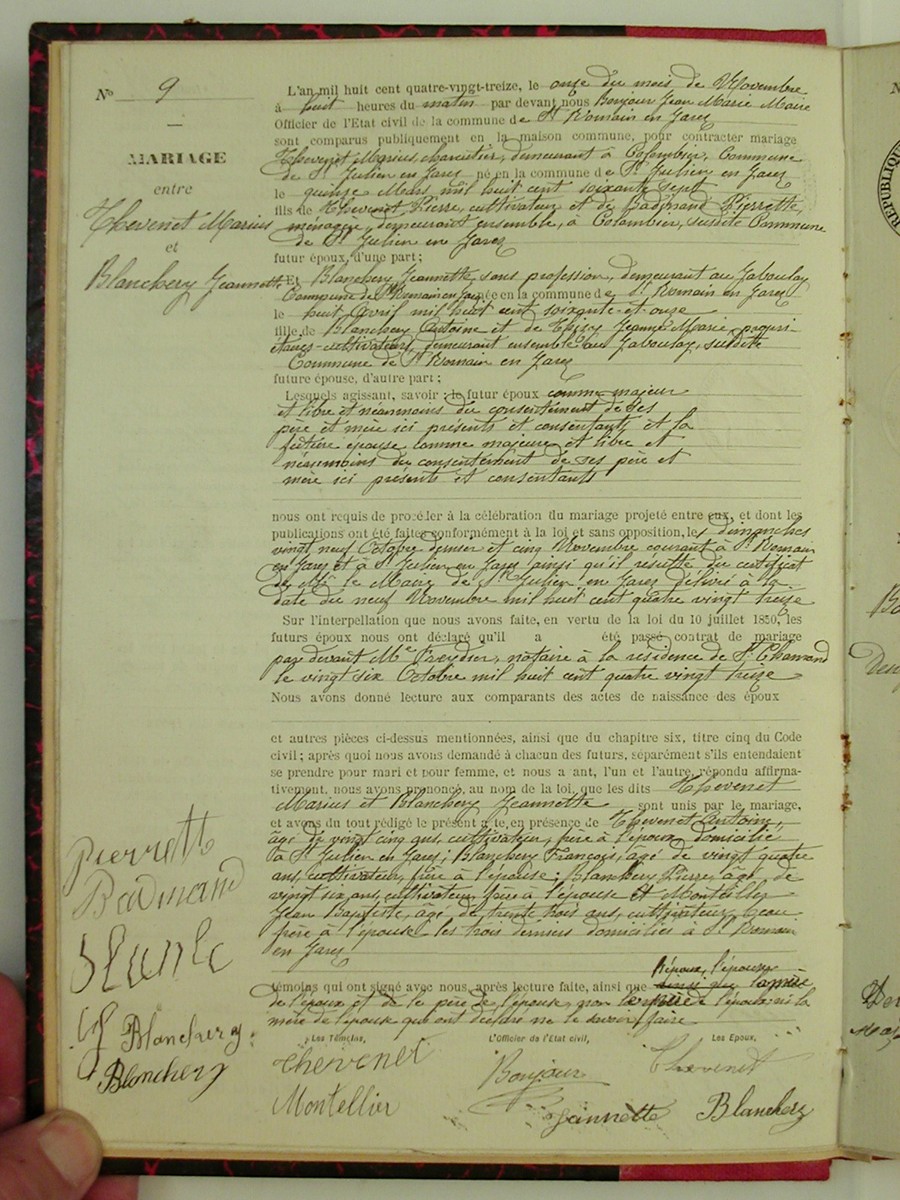 N° 9
MARIAGE
entre
Thevenet Marius
et
Blanchery Jeannette
L'an mil huit cent quatre-vingt-treize, le onze du mois de Novembre
à huit heures du matin par devant nous Bonjour Jean Marie Maire
Officier de l'Etat civil de la commune de St Romain en Jarez
sont comparus publiquement en la maison commune, pour contracter mariage
Thevenet Marius, charcutier, demeurant à Colombier, Commune
de St Julien en Jarez né en la commune de St Julien en Jarez
le quinze Mars mil huit cent soixante sept
fils de Thevenet Pierre, cultivateur et de Badinand Pierrette,
ménagère, demeurant ensemble, à Colombier, susdite Commune
de St Julien en Jarez
futur époux, d'une part;
Et Blanchery Jeannette, sans profession, demeurant au Jaboulay
Commune de St Romain en Jarez née en la commune de St Romain en Jarez
le huit Avril mil huit cent soixante et onze
fille de Blanchery Antoine et de Thivy Jeanne Marie, propri
étaires-cultivateurs, demeurant ensemble au Jaboulay, susdite
Commune de St Romain en Jarez
future épouse, d'autre part;
Lesquels agissant, savoir: le futur époux comme majeur
et libre et néanmoins du consentement de ses
père et mère ici présents et consentants et la
future épouse comme majeure et libre et
néanmoins du consentement de ses père et
mère ici présents et consentants
nous ont requis de procéder à la célébration du mariage projeté entre eux, et dont les
publications ont été faites conformément à la loi et sans opposition, les dimanches
vingt neuf Octobre dernier et cinq Novembre courant à St Romain
en Jarez et à St Julien en Jarez ainsi qu'il résulte du certificat
de Mr le Maire de St Julien en Jarez délivré à la
date du neuf Novembre mil huit cent quatre vingt treize
Sur l'interpellation que nous avons faite, en vertu de la loi du 10 juillet 1850, les
futurs époux nous ont déclaré qu'il a été passé contrat de mariage
par devant Me Freydier, notaire à la résidence de St Chamond
le vingt six Octobre mil huit cent quatre vingt treize
Nous avons donné lecture aux comparants des actes de naissance des époux
et autres pièces ci-dessus mentionnées, ainsi que du chapitre six, titre cinq du Code
civil; après quoi nous avons demandé à chacun des futurs, séparément s'ils entendaient
se prendre pour mari et pour femme, et nous a ant, l'un et l'autre, répondu affirma-
tivement, nous avons prononcé, au nom de la loi, que les dits Thevenet
Marius et Blanchery Jeannette sont unis par le mariage,
et avons du tout rédigé le présent a te, en présence de Thevenet Antoine,
âgé de vingt cinq ans, cultivateur, frère à l'époux domicilié
à St Julien en Jarez; Blanchery François, âgé de vingt quatre
ans, cultivateur, frère à l'épouse; Blanchery Pierre, âgé, de
vingt six ans, cultivateur, frère à l'épouse et Montellier
Jean Baptiste, âgé de trente trois ans, cultivateur, beau
frère à l'épouse les trois derniers domiciliés à St Romain
en Jarez
l'époux, l'épouse
témoins qui ont signé avec nous après lecture faite, ainsi que la mère
de l'époux et de le père de l'épouse, non le père de l'époux ni la
mère de l'épouse qui ont déclaré ne le savoir faire
Les Témoins, L'Officier de l'Etat civil, Les Epoux,
Thevenet Bonjour Thevenet
Montellier Jeannette Blanchery
Pierrette
Badinand
Blanchery
Blanchery
REPUBLIQUE